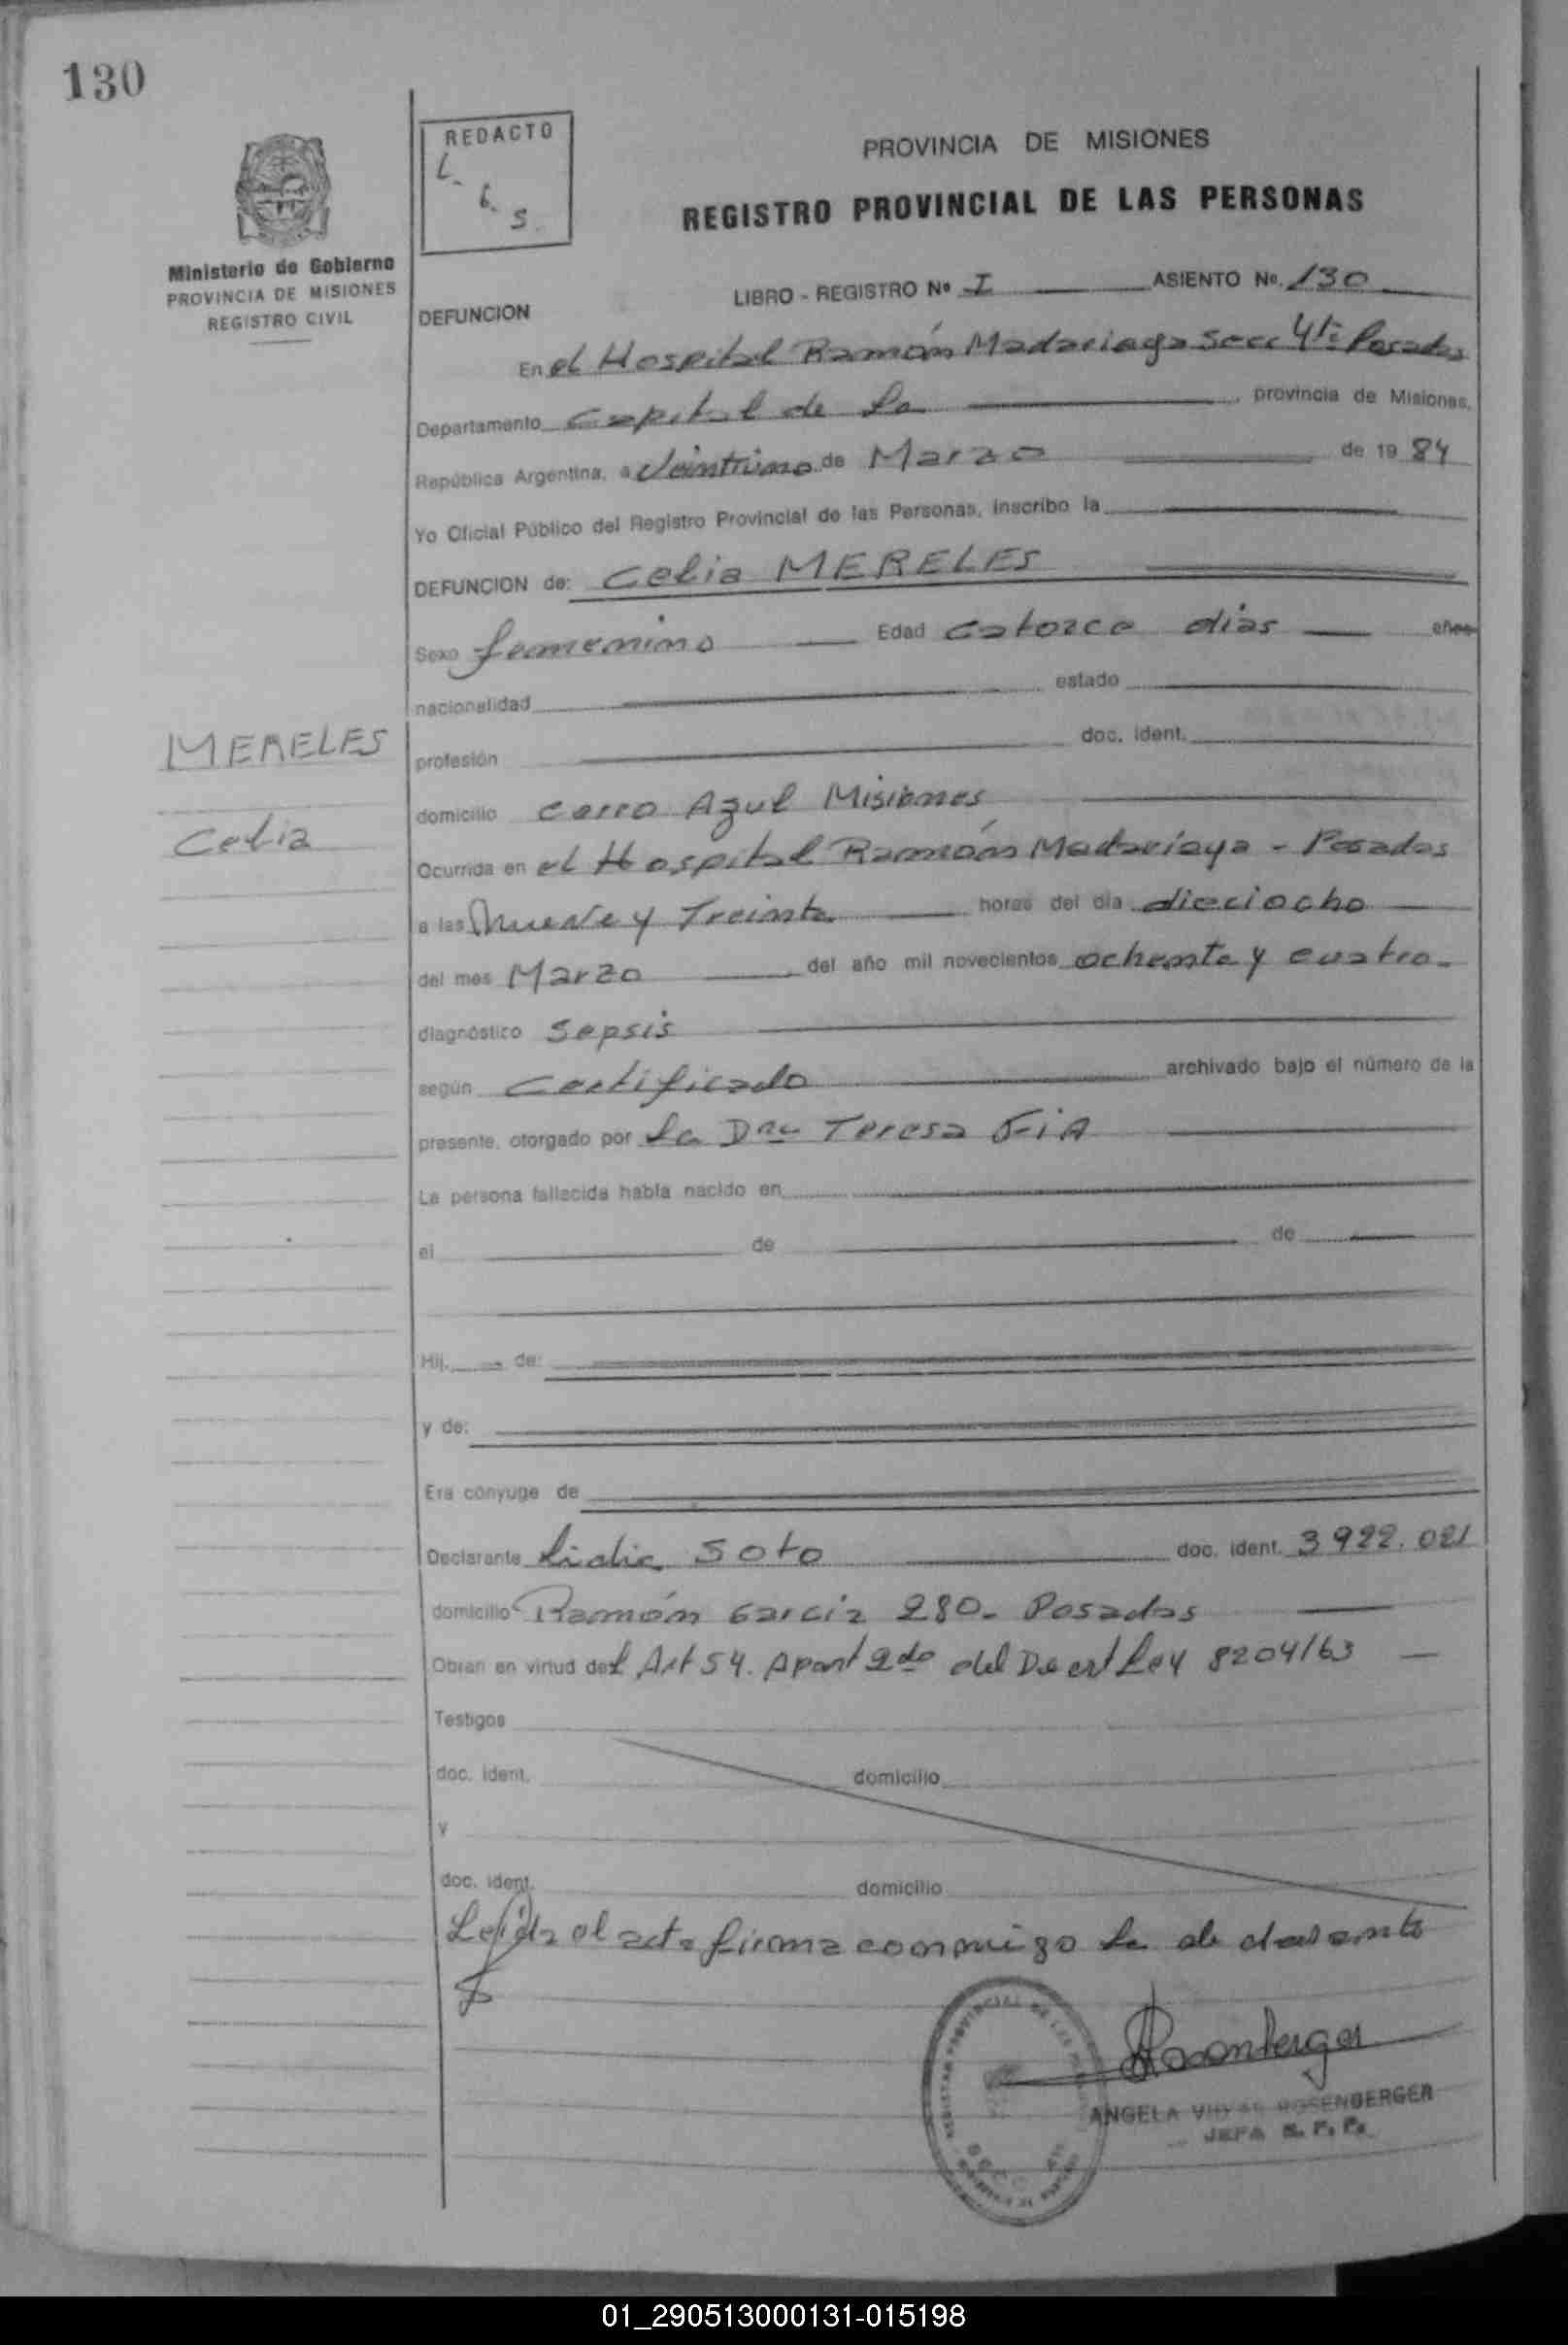 130
REDACTO
L.
G.
S.
Ministerio de Gobierno
PROVINCIA DE MISIONES
REGISTRO CIVIL
PROVINCIA DE MISIONES
REGISTRO PROVINCIAL DE LAS PERSONAS
LIBRO - REGISTRO Nº I ASIENTO No. 130
DEFUNCION
En el Hospital Ramón Madariaga Secc 4ta Posadas
Departamento Capital de la provincia de Misiones,
República Argentina, a Veintiuno de Marzo de 19 84
Yo Oficial Público del Registro Provincial de las Personas, inscribo la
DEFUNCION de: Celia MERELES
Sexo femenino Edad catorce dias años
nacionalidad estado
profesión doc. ident.
MERELES
Celia
domicilio Cerro Azul Misiones
Ocurrida en el Hospital Ramón Madariaga - Posadas
a las Nueve y Treinta horas del día dieciocho
del mes Marzo del año mil novecientos ochenta y cuatro.
diagnóstico Sepsis
según Certificado archivado bajo el número de la
presente, otorgado por La Dra Teresa
La persona fallecida había nacido en
el de de
Hij. de:
y de:
Era cónyuge de
Declarante Lidia Soto doc. ident. 3922.021
domicilio Ramón Garcia 280- Posadas
Obran en virtud del Art 54. Apart 2do del Decrt Ley 8204/63
Testigos
doc. ident. domicilio
y
doc. ident. domicilio
Leída el acta firma conmigo la declarante
Rosenberger
ANGELA ROSENBERGER
JEFA R. P. P.
01_290513000131-015198